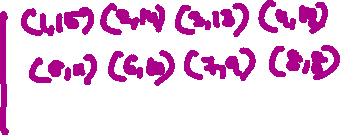 (1,15) (2,14) (3,13) (4,12)
(5,11) (6,10) (7,9) (8,8)